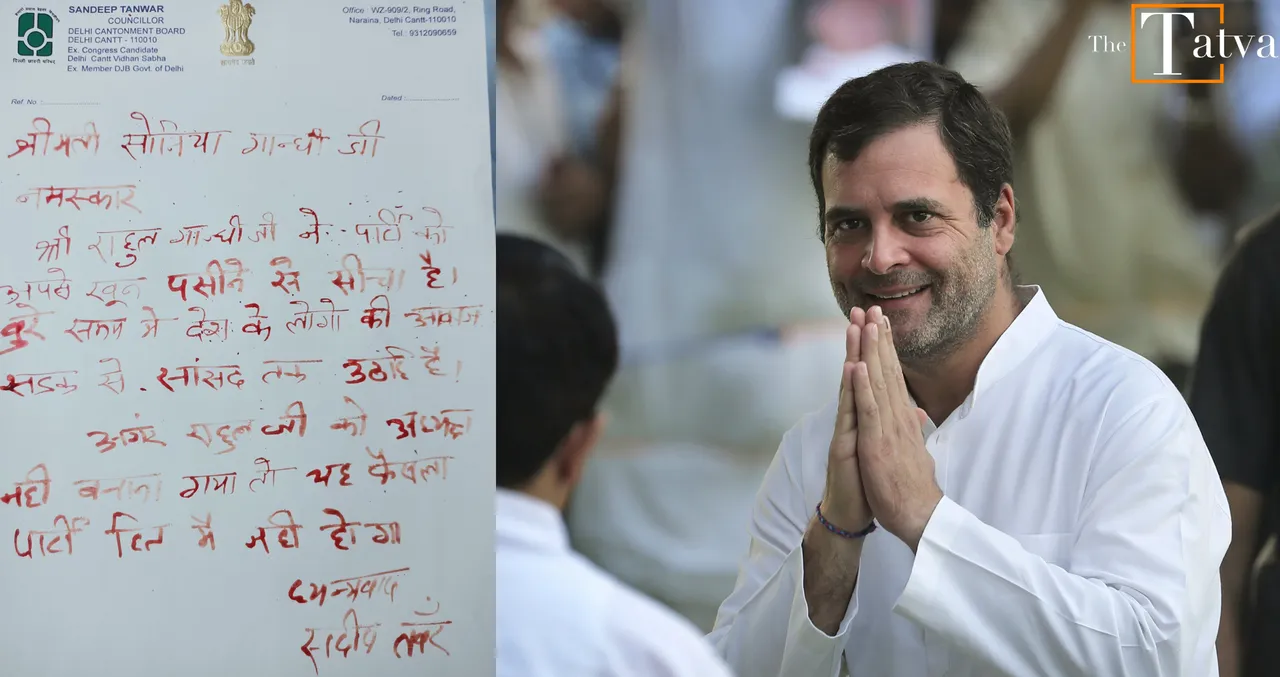 SANDEEP TANWAR
COUNCILLOR
DELHI CANTONMENT BOARD
DELHI CANTT - 110010
Ex. Congress Candidate
Delhi Cantt Vidhan Sabha
Ex. Member DJB Govt. of Delhi
Office : WZ-909/2, Ring Road,
Naraina, Delhi Cantt-110010
Tel : 9312090659
Ref. No :
Dated :
श्रीमती सोनिया गान्धी जी
नमस्कार
श्री राहुल गान्धी जी ने पार्टि को
अपने खून पसीने से सीचा है।
बुरे समय मे देश के लोगो की आवाज
सडक से सांसद तक उठाई है।
अगर राहुल जी को अध्यक्ष
नही बनाया गया तो यह फैसला
पार्टी हित मै नही होगा
धन्यवाद
The Tatva